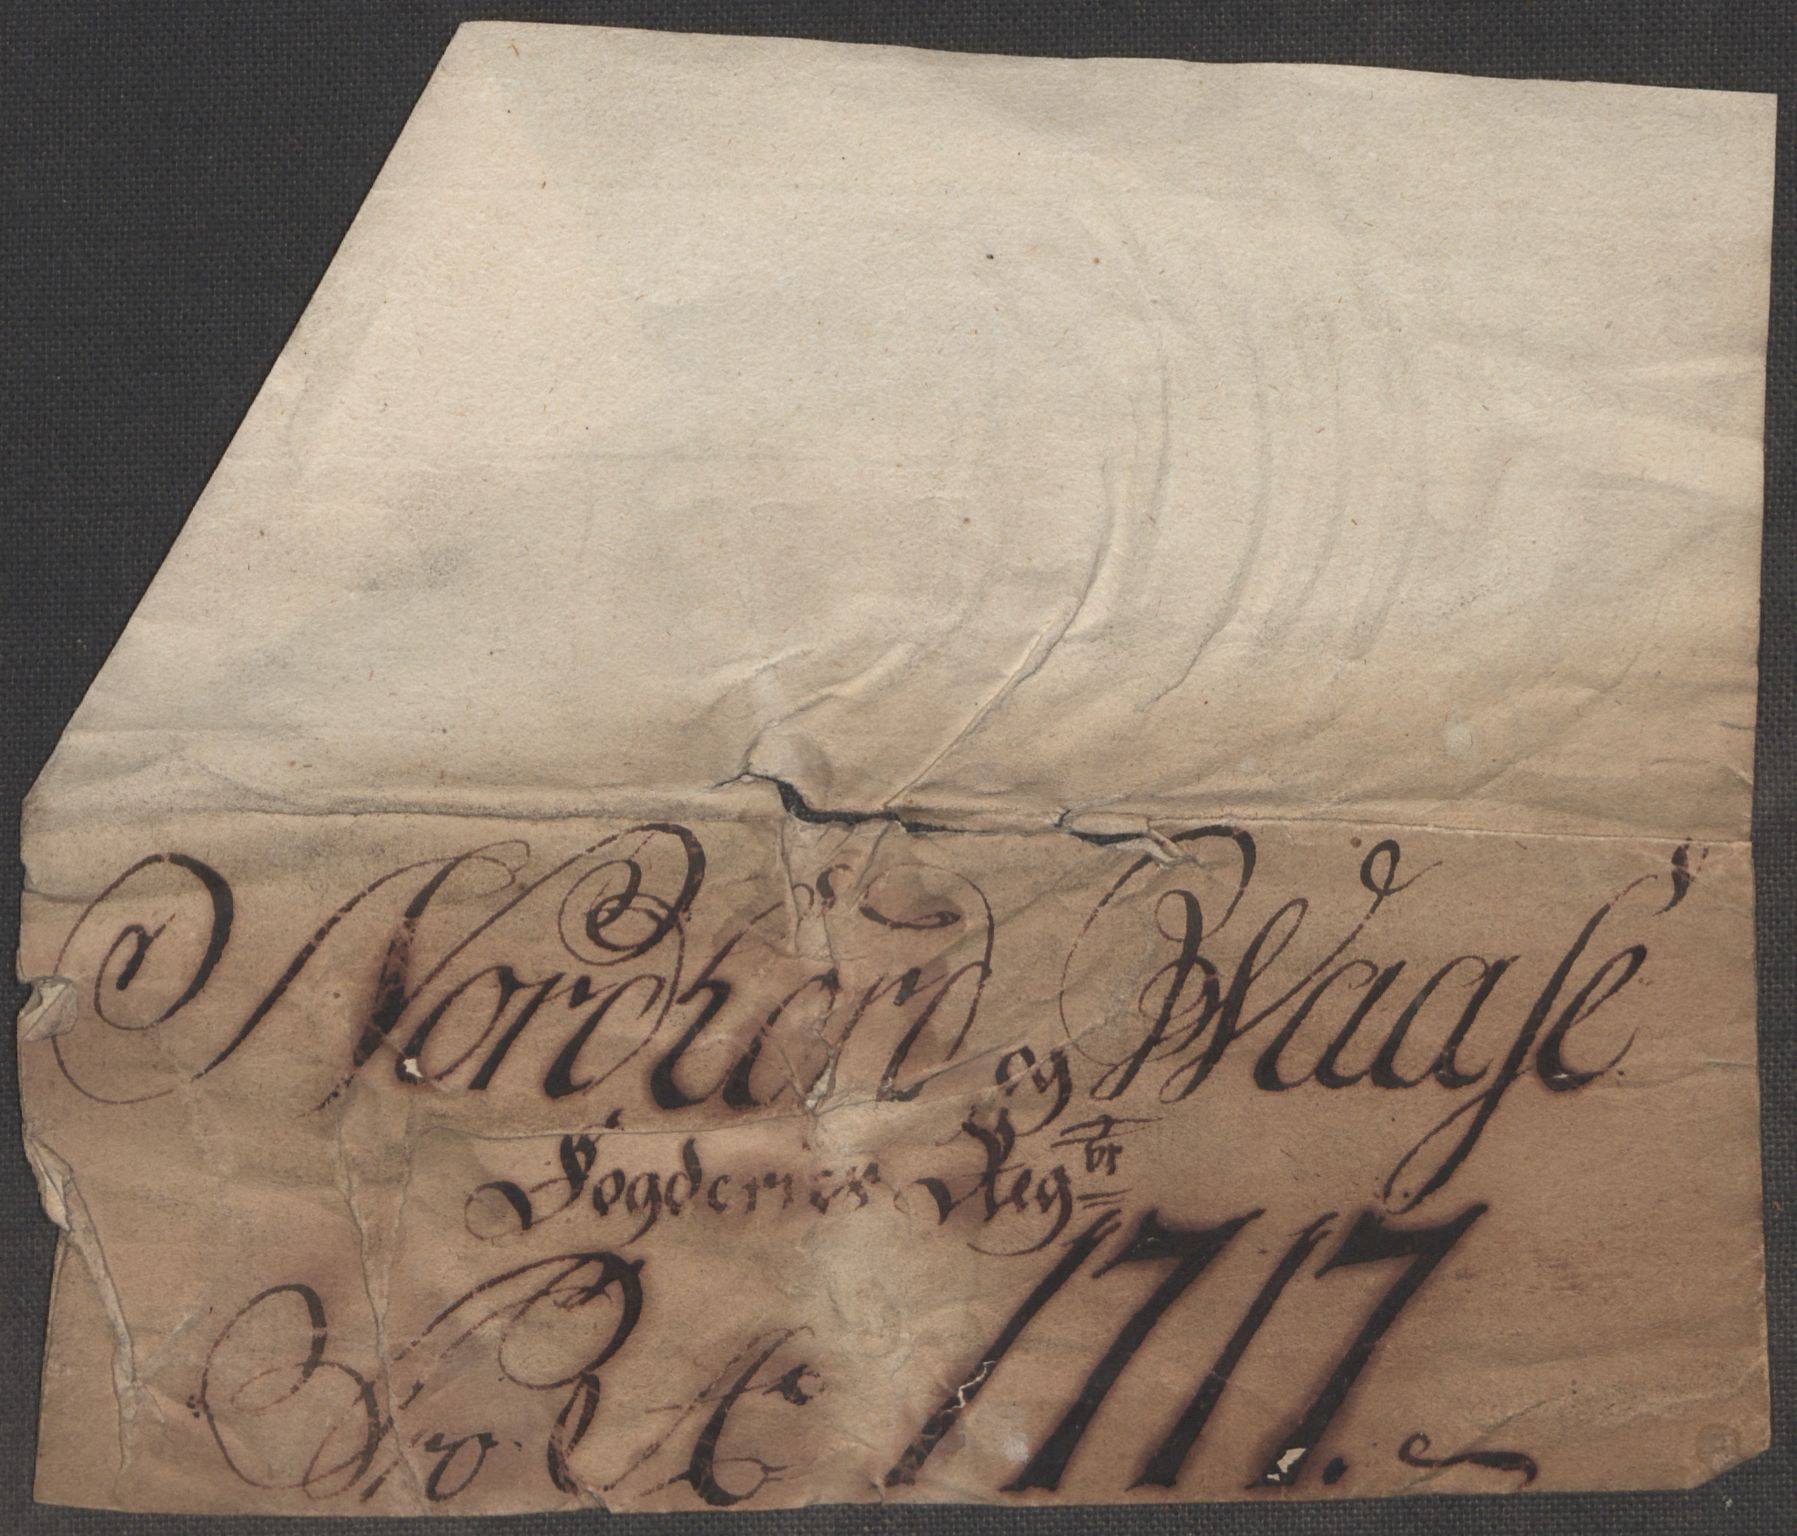 Nordhord og Waasße
Fogderies Regbr
Pro Ao 1717.